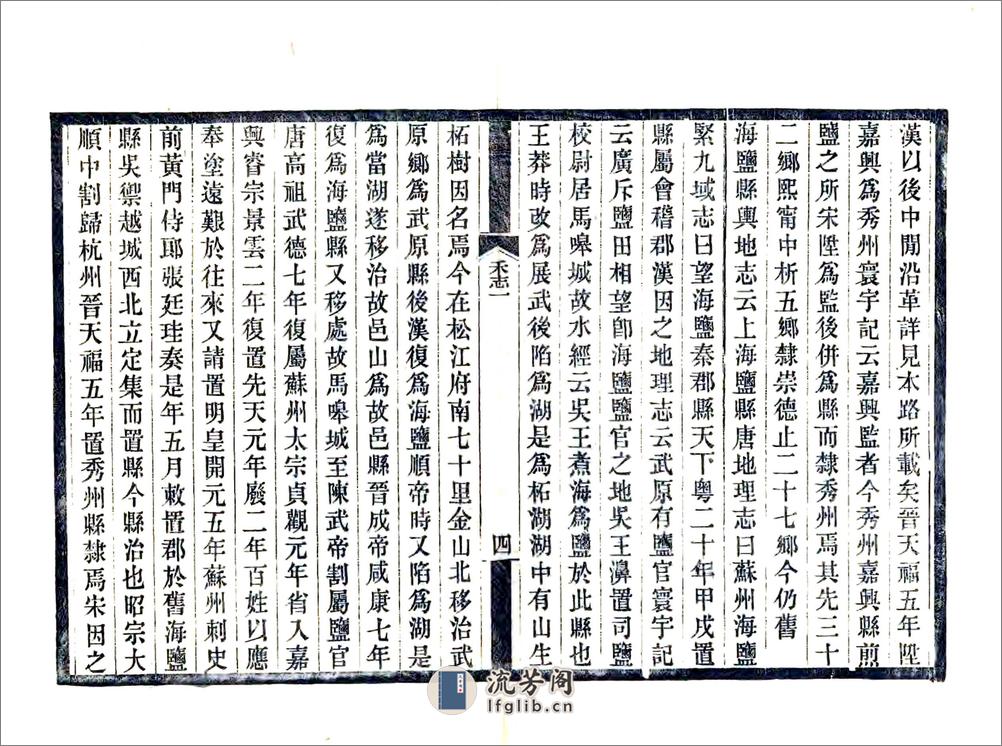 漢以後中閒沿革詳見本路所載矣晉天福五年陞
嘉興為秀州寰宇記云嘉興監者今秀州嘉興縣煎
鹽之所宋陞為監後併為縣而隸秀州焉其先三十
二鄉熙甯中析五鄉隸崇德止二十七鄉今仍舊
海鹽縣輿地志云上海鹽縣唐地理志曰蘇州海鹽
緊九域志曰望海鹽秦郡縣天下粵二十年甲戌置
縣屬會稽郡漢因之地理志云武原有鹽官寰宇記
云廣斥鹽田相望卽海鹽鹽官之地吳王濞置司鹽
校尉居馬嗥城故水經云吳王煮海為鹽於此縣也
王莽時改為展武後陷為湖是為柘湖湖中有山生
禾志一
四
柘樹因名焉今在松江府南七十里金山北移治武
原鄉為武原縣後漢復為海鹽順帝時又陷為湖是
為當湖遂移治故邑山為故邑縣晉成帝咸康七年
復為海鹽縣又移處故馬嗥城至陳武帝割屬鹽官
唐高祖武德七年復屬蘇州太宗貞觀元年省入嘉
興睿宗景雲二年復置先天元年廢二年百姓以應
奉塗遠艱於往來又請置明皇開元五年蘇州刺史
前黃門侍郎張廷珪奏是年五月敕置郡於舊海鹽
縣吳禦越城西北立定集而置縣今縣治也昭宗大
順中割歸杭州晉天福五年置秀州縣隸焉宋因之
流芳阁
lfglib.cn